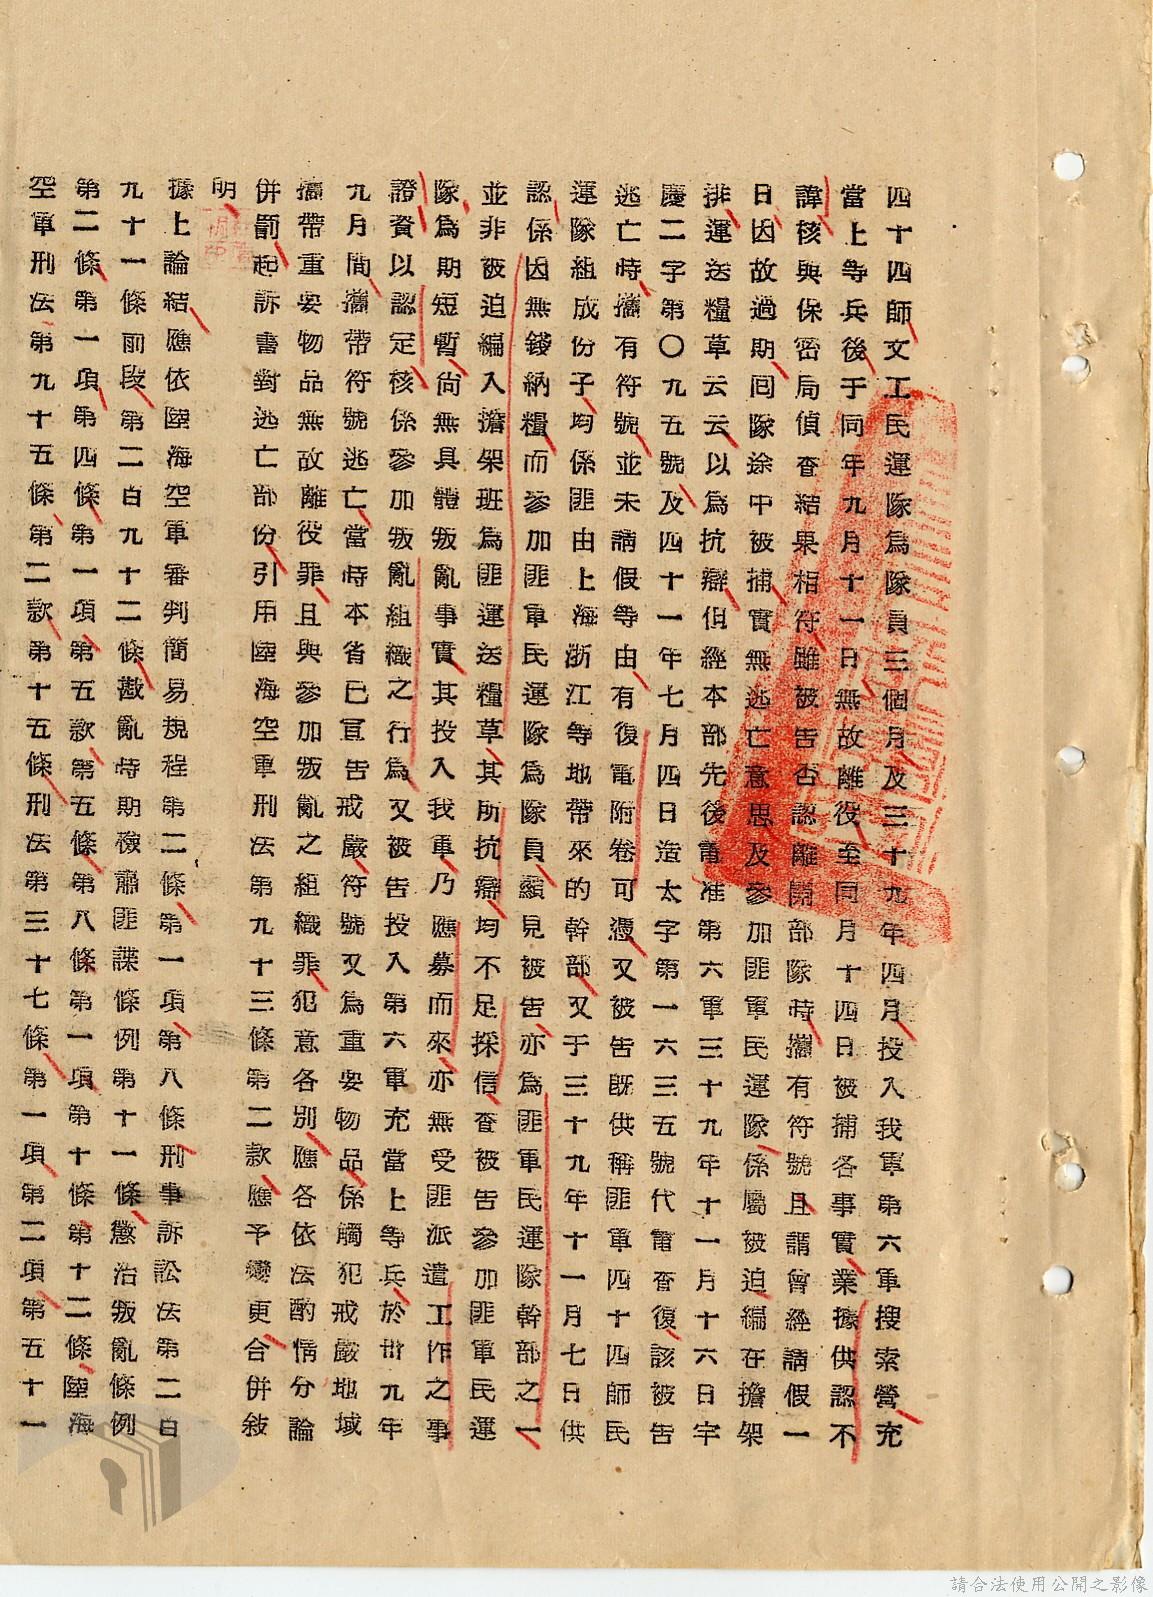 四十四師文工民運隊為隊員三個月及三十九年四月投入我軍第六軍搜索營充
當上等兵後于同年九月十一日無故離役至同月十四日被捕各事實業據供認不
諱核與保密局偵查結果相符雖被告否認離開部隊時攜有符號且謂曾經請假一
日因故過期囘隊途中被捕實無逃亡意思及參加匪軍民運隊係屬被迫編在擔架
排運送糧草云云以為抗辯但經本部先後電准第六軍三十九年十一月十六日宇
慶二字第〇九五號及四十一年七月四日造太字第一六三五號代電查復該被告
逃亡時攜有符號並未請假等由有復電附卷可憑又被告旣供稱匪軍四十四師民
運隊組成份子均係匪由上海浙江等地帶來的幹部又于三十九年十一月七日供
認係因無錢納糧而參加匪軍民運隊為隊員顯見被告亦為匪軍民運隊幹部之一
並非被迫編入擔架班為匪運送糧草其所抗辯均不足採信查被告參加匪軍民運
隊為期短暫尚無具體叛亂事實其投入我軍乃應募而來亦無受匪派遣工作之事
證資以認定核係參加叛亂組織之行為又被告投入第六軍充當上等兵於卅九年
九月間攜帶符號逃亡當時本省已宣告戒嚴符號又為重要物品係觸犯戒嚴地域
攜帶重要物品無故離役罪且與參加叛亂之組織罪犯意各別應各依法酌情分論
併罰起訴書對逃亡部份引用陸海空軍刑法第九十三條第二款應予變更合併敍
明
據上論結應依陸海空軍審判簡易規程第二條第一項第八條刑事訴訟法第二白
九十一條前段第二白九十二條戡亂時期檢肅匪諜條例第十一條懲治叛亂條例
第二條第一項第四條第一項第五款第五條第八條第一項第十條第十二條陸海
空軍刑法第九十五條第二款第十五條刑法第三十七條第一項第二項第五十一
請合法使用公開之影像